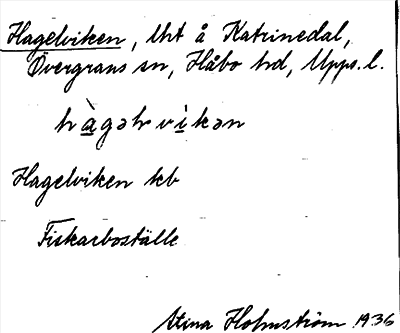 Hagelviken, lht å Katrinedal,
Övergrans sn, Håbo hd, Upps. l.
hàgəlvìkən
Hagelviken kb
Fiskarboställe
Stina Holmström 1936